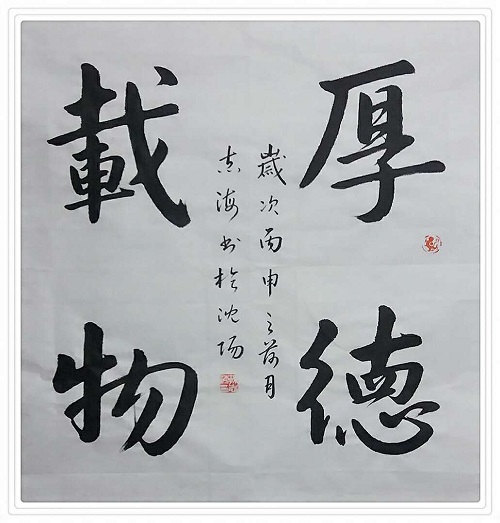 厚德
載物
歲次丙申之荷月
志海书於沈陽